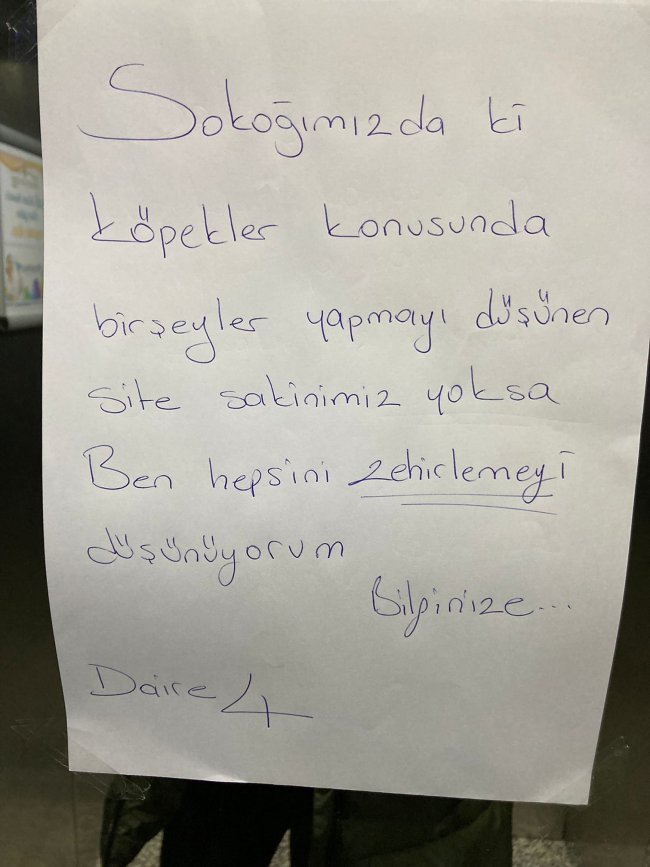 Sokoğımızda ki
köpekler konusunda
birşeyler yapmayı düşünen
site sakinimiz yoksa
Ben hepsini zehirlemeyi
düşünüyorum
Bilginize...
Daire 4